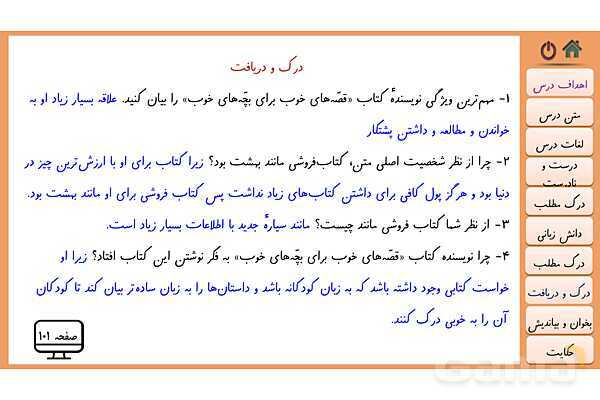 درک و دریافت
۱- مهم‌ترین ویژگی نویسندهٔ کتاب «قصّه‌های خوب برای بچّه‌های خوب» را بیان کنید. علاقه بسیار زیاد او به
خواندن و مطالعه و داشتن پشتکار
۲- چرا از نظر شخصیت اصلی متن، کتاب‌فروشی مانند بهشت بود؟ زیرا کتاب برای او با ارزش‌ترین چیز در
دنیا بود و هرگز پول کافی برای داشتن کتاب‌های زیاد نداشت پس کتاب فروشی برای او مانند بهشت بود.
۳- از نظر شما کتاب فروشی مانند چیست؟ مانند سیارهٔ جدید با اطلاعات بسیار زیاد است.
۴- چرا نویسنده کتاب «قصّه‌های خوب برای بچّه‌های خوب» به فکر نوشتن این کتاب افتاد؟ زیرا او
خواست کتابی وجود داشته باشد که به زبان کودکانه باشد و داستان‌ها را به زبان ساده‌تر بیان کند تا کودکان
آن را به خوبی درک کنند.
صفحه ۱۰۱
اهداف درس
متن درس
لغات درس
درست و
نادرست
درک مطلب
دانش زبانی
درک مطلب
درک و دریافت
بخوان و بیاندیش
حکایت
Gama